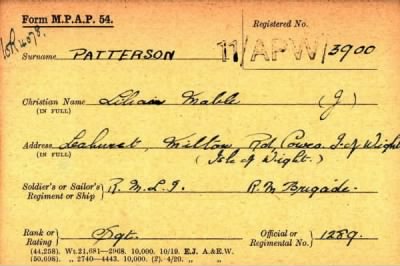 Form M.P.A.P. 54.
Registered No.
Surname PATTERSON 11/APW/3900
Christian Name Lilian Mable (J)
(IN FULL)
Address Leahurst, Milton Rd, Cowes I. of Wight
(IN FULL) (Isle of Wight.)
Soldier's or Sailor's R.M.L.I. R.M Brigade.
Regiment or Ship
Rank or Sgt. Official or 1289.
Rating Regimental No.
(44,258). Wt.21,681—2968. 10,000. 10/19. E.J. A.&E.W.
(50,698). „ 2740—4443. 10,000 (2). 4/20. „ „